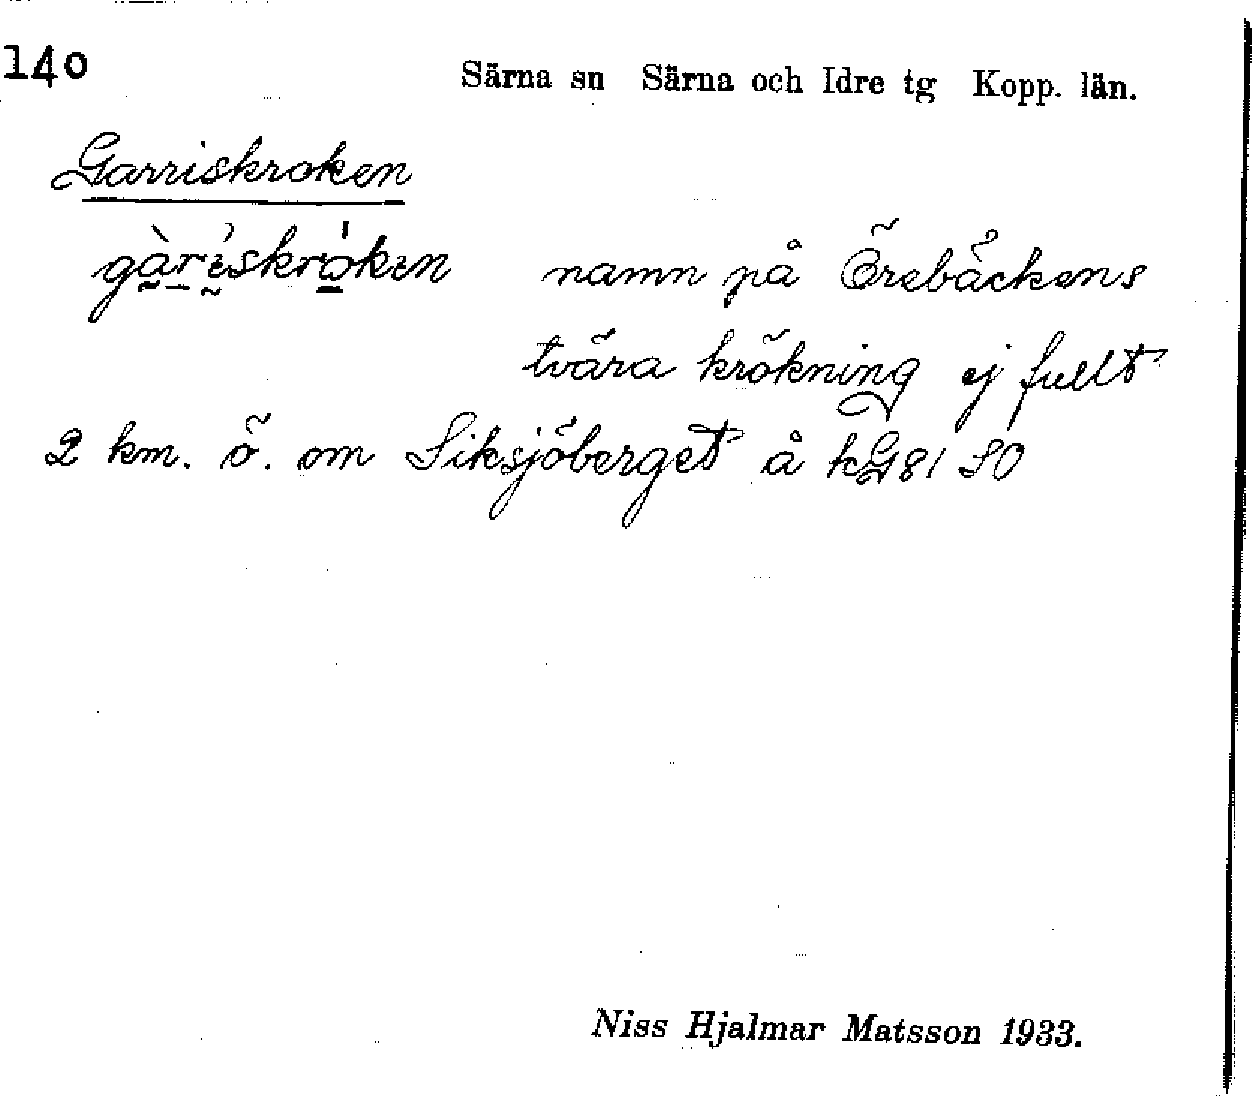 140
Särna sn Särna och Idre tg Kopp. län.
Garriskroken
gàriskróken namn på Örebäckens
tvära krökning ej fullt
2 km. ö. om Siksjöberget å kG81 SO
Niss Hjalmar Matsson 1933.